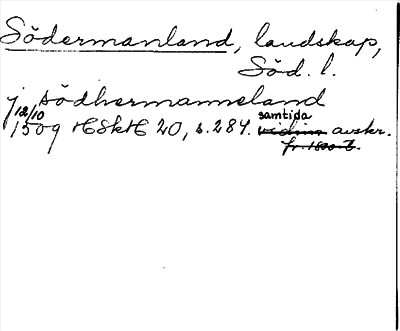 Södermanland, landskap,
Söd. l.
j södhermanneland
12/10 1509 HSkH 20, s. 284. samtida vidim avskr.
fr. 1800-t.